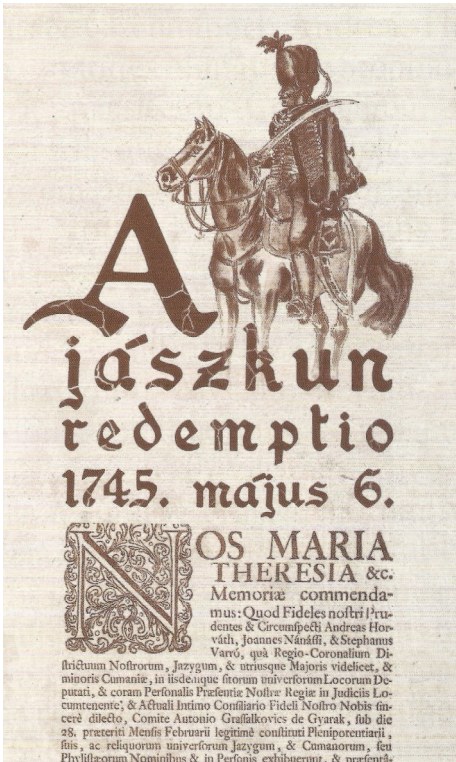 A
jászkun
redemptio
1745. május 6.
NOS MARIA
THERESIA &c.
Memoriæ commenda-
mus: Quod Fideles noſtri Pru-
dentes & Circumſpecti Andreas Hor-
váth, Joannes Nánáſſi, & Stephanus
Varró, quà Regio-Coronalium Di-
ſtrictuum Noſtrorum, Jazygum, & utriusque Majoris videlicet, &
minoris Cumaniæ, in iisdemque ſitorum univerſorum Locorum De-
putati, & coram Perſonalis Præſentiæ Noſtræ Regiæ in Judiciis Lo-
cumtenente, & Actuali Intimo Conſiliario Fideli Noſtro Nobis ſin-
cerè dilecto, Comite Antonio Graſſalkovics de Gyarak, ſub die
28. præteriti Menſis Februarii legitimè conſtituti Plenipotentiarii,
ſuis, ac reliquorum univerſorum Jazygum, & Cumanorum, ſeu
Phyliſtæorum Nominibus & in Perſonis exhibuerunt, & præſentâ-